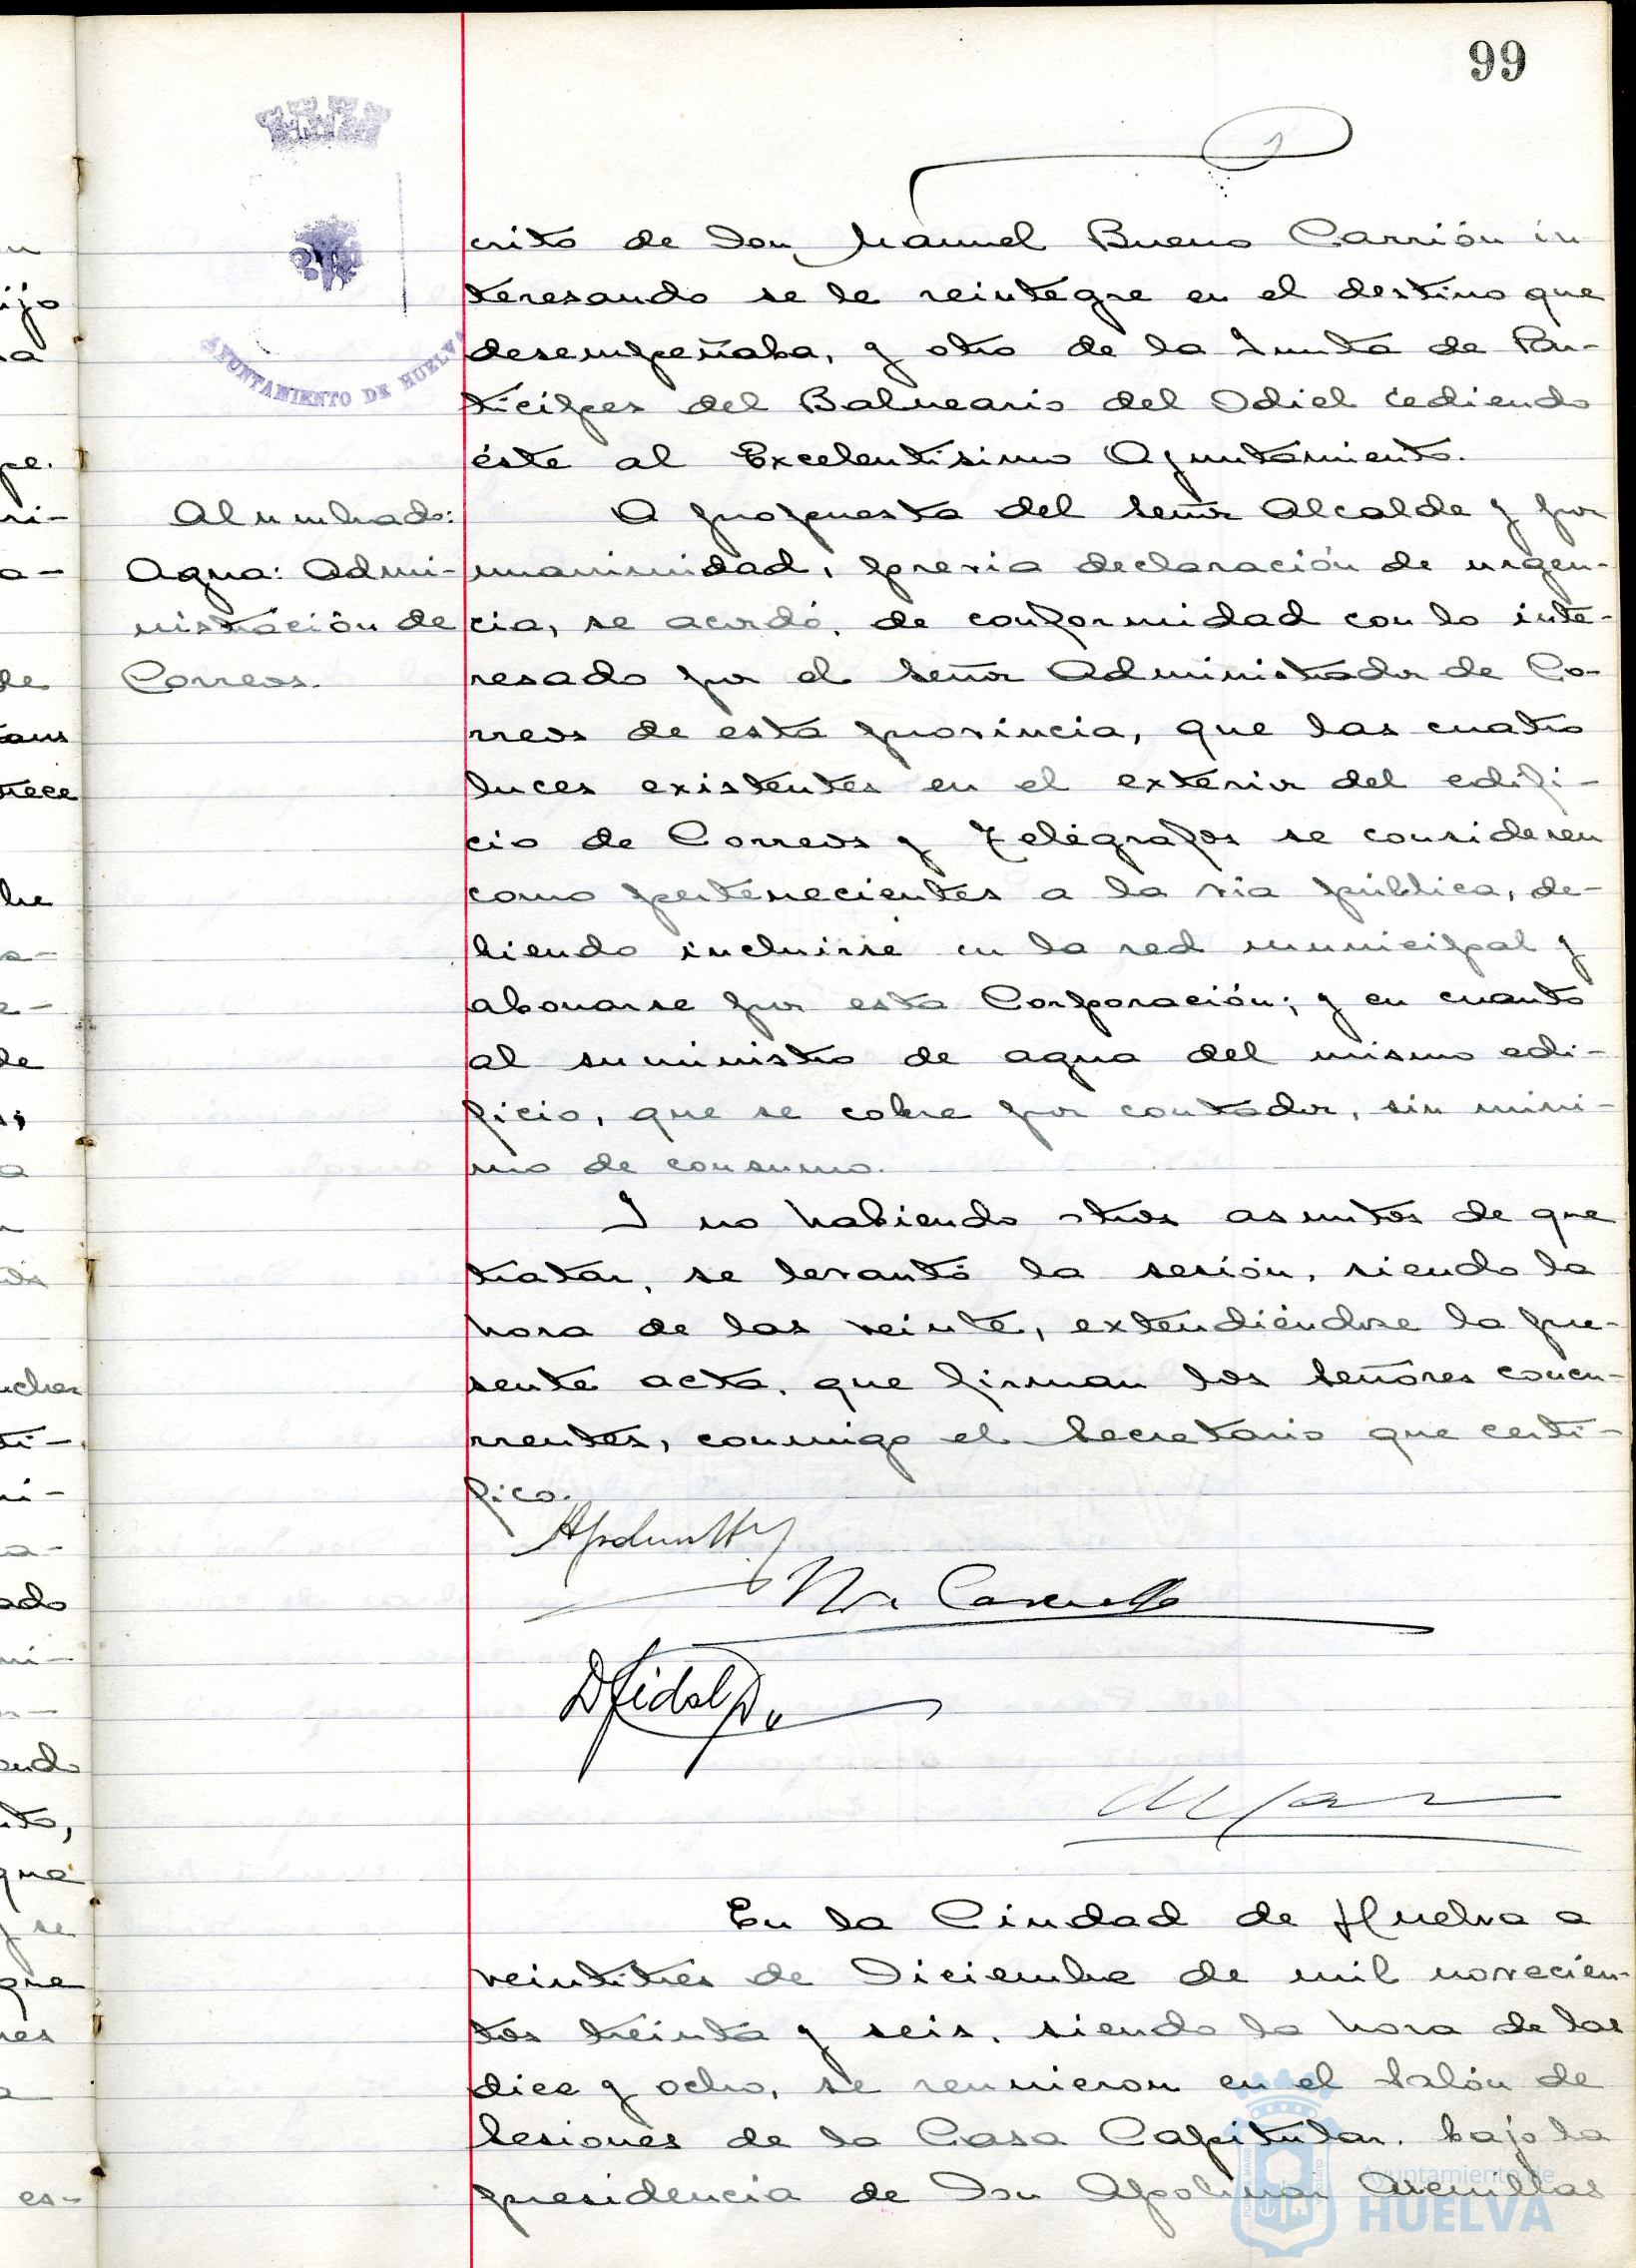 99
AYUNTAMIENTO DE HUELVA
crito de Don Manuel Bueno Carrión in
teresando se le reintegre en el destino que
desempeñaba, y otro de la Junta de Par-
tícipes del Balneario del Odiel cediendo
éste al Excelentísimo Ayuntamiento.
Alumbado:
Agua: Admi-
nistración de
Correos.
A propuesta del Señor Alcalde y por
unanimidad, previa declaración de urgen-
cia, se acordó, de conformidad con lo inte-
resado por el Señor Administrador de Co-
rreos de esta provincia, que las cuatro
luces existentes en el exterior del edifi-
cio de Correos y Telégrafos se consideren
como pertenecientes a la vía pública, de-
biendo incluirse en la red municipal y
abonarse por esta Corporación; y en cuanto
al suministro de agua del mismo edi-
ficio, que se cobre por contador, sin míni-
mo de consumo.
Y no habiendo otros asuntos de que
tratar, se levantó la sesión, siendo la
hora de las veinte, extendiéndose la pre-
sente acta, que firman los Señores concu-
rrentes, conmigo el Secretario que certi-
fico.
En la Ciudad de Huelva a
veintitrés de Diciembre de mil novecien-
tos treinta y seis, siendo la hora de las
diez y ocho, se reunieron en el Salón de
Sesiones de la Casa Capitular, bajo la
presidencia de Don Apolinar Arenillas
Ayuntamiento de
HUELVA